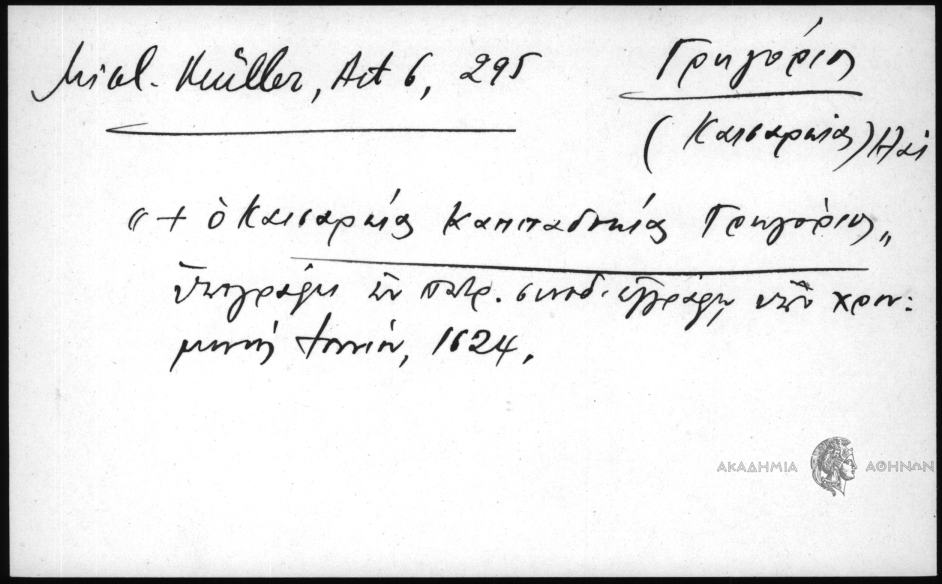 Miel. Müller, Act 6, 295
Γρηγόριος
(Καισαρείας)
"+ ὁ Καισαρείας Καππαδοκίας Γρηγόριος"
ὑπογράφει ἐν πατρ. συνοδ. ἐγγράφῳ, ὑπὸ χρον:
μηνὶ, 1624.
ΑΚΑΔΗΜΙΑ ΑΘΗΝΩΝ